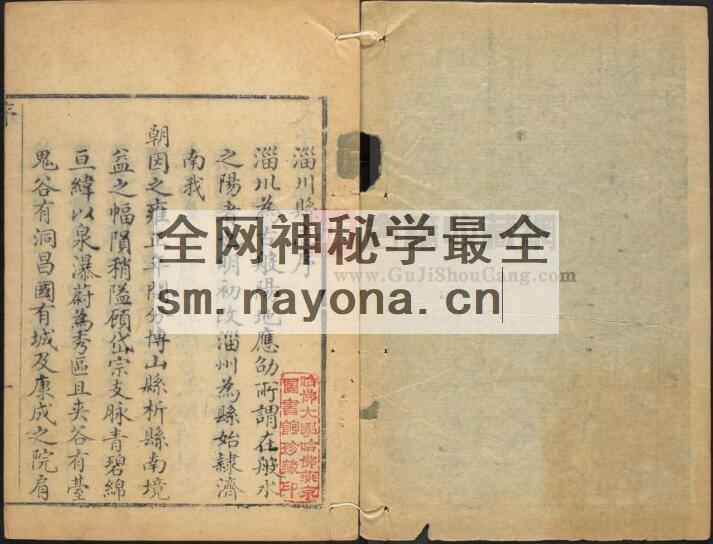 淄川縣序
淄川為古般陽地應劭所謂在般水
之陽者明初改淄州為縣始隸濟
南我
朝因之雍正年間分博山縣析縣南境
益之幅隕稍隘顧岱宗支脉青碧綿
亘緯以泉瀑蔚為秀區且夹谷有臺
鬼谷有洞昌國有城及康成之院有
序
哈佛大學哈佛燕京
圖書館珍藏印
全网神秘学最全
sm.nayona.cn
www.GuJiShouCang.com